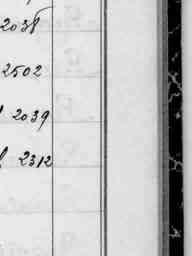 2038
2502
2039
2312